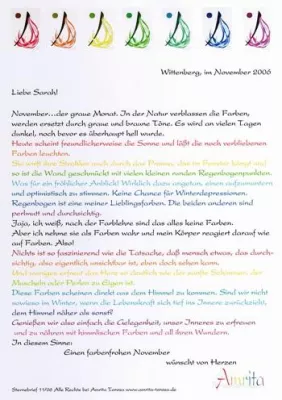 Wittenberg, im November 2006
Liebe Sarah!
November...der graue Monat. In der Natur verblassen die Farben,
werden ersetzt durch graue und braune Töne. Es wird an vielen Tagen
dunkel, noch bevor es überhaupt hell wurde.
Heute scheint freundlicherweise die Sonne und läßt die noch verbliebenen
Farben leuchten.
Sie wirft ihre Strahlen auch durch das Prisma, das im Fenster hängt und
so ist die Wand geschmückt mit vielen kleinen runden Regenbogenpunkten.
Was für ein fröhlicher Anblick! Wirklich dazu angetan, einen aufzumuntern
und optimistisch zu stimmen. Keine Chance für Winterdepressionen.
Regenbogen ist eine meiner Lieblingsfarben. Die beiden anderen sind
perlmutt und durchsichtig.
Jaja, ich weiß, nach der Farblehre sind das alles keine Farben.
Aber ich nehme sie als Farben wahr und mein Körper reagiert darauf wie
auf Farben. Also!
Nichts ist so faszinierend wie die Tatsache, daß mensch etwas, das durch-
sichtig, also eigentlich unsichtbar ist, eben doch sehen kann.
Und weniges erfreut das Herz so wie der sanfte Schimmer, der
Muscheln oder Perlen zu Eigen ist.
Diese Farben scheinen direkt aus dem Himmel zu kommen. Sind wir nicht
sowieso im Winter, wenn die Lebenskraft sich tief ins Innere zurückzieht,
dem Himmel näher als sonst?
Genießen wir also einfach die Gelegenheit, unser Inneres zu erfreuen
und zu nähren mit himmlischen Farben und all ihren Wundern.
In diesem Sinne:
Einen farbenfrohen November
wünscht von Herzen
Amrita
Sternebrief 11/06 Alle Rechte bei Amrita Torosa www.amrita-torosa.de